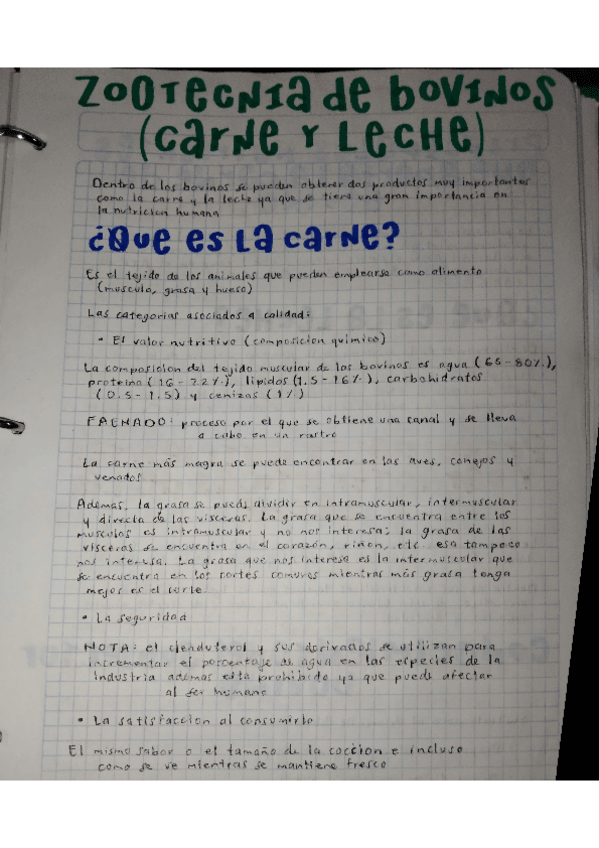 ZOOTECNIA DE BOVINOS
(CARNE Y LECHE)
Dentro de los bovinos se pueden obtener dos productos muy importantes
como la carne y la leche ya que se tiene una gran importancia en
la nutricion humana
¿QUE ES LA CARNE?
Es el tejido de los animales que pueden emplearse como alimento
(musculo, grasa y hueso)
Las categorias asociados a calidad:
• El valor nutritivo (composicion quimico)
La composicion del tejido muscular de los bovinos es agua (65-80%),
proteina (16-22%), lipidos (1.5-16%), carbohidratos
(0.5-1.5) y cenizas (1%)
FAENADO: proceso por el que se obtiene una canal y se lleva
a cabo en un rastro
La carne más magra se puede encontrar en las aves, conejos y
venados
Ademas, la grasa se puede dividir en intramuscular, intermuscular
y directa de las visceras. La grasa que se encuentra entre los
musculos es intramuscular y no nos interesa; la grasa de las
visceras se encuentra en el corazón, riñon, etc. esa tampoco
nos interesa. La grasa que nos interesa es la intermuscular que
se encuentra en los cortes comunes mientras más grasa tenga
mejor es el corte.
• La seguridad
NOTA: el clenbuterol y sus derivados se utilizan para
incrementar el porcentaje de agua en las especies de la
industria ademas está prohibido ya que puede afectar
al ser humano
• La satisfaccion al consumirlo
El mismo sabor o el tamaño de la coccion e incluso
como se ve mientras se mantiene fresco